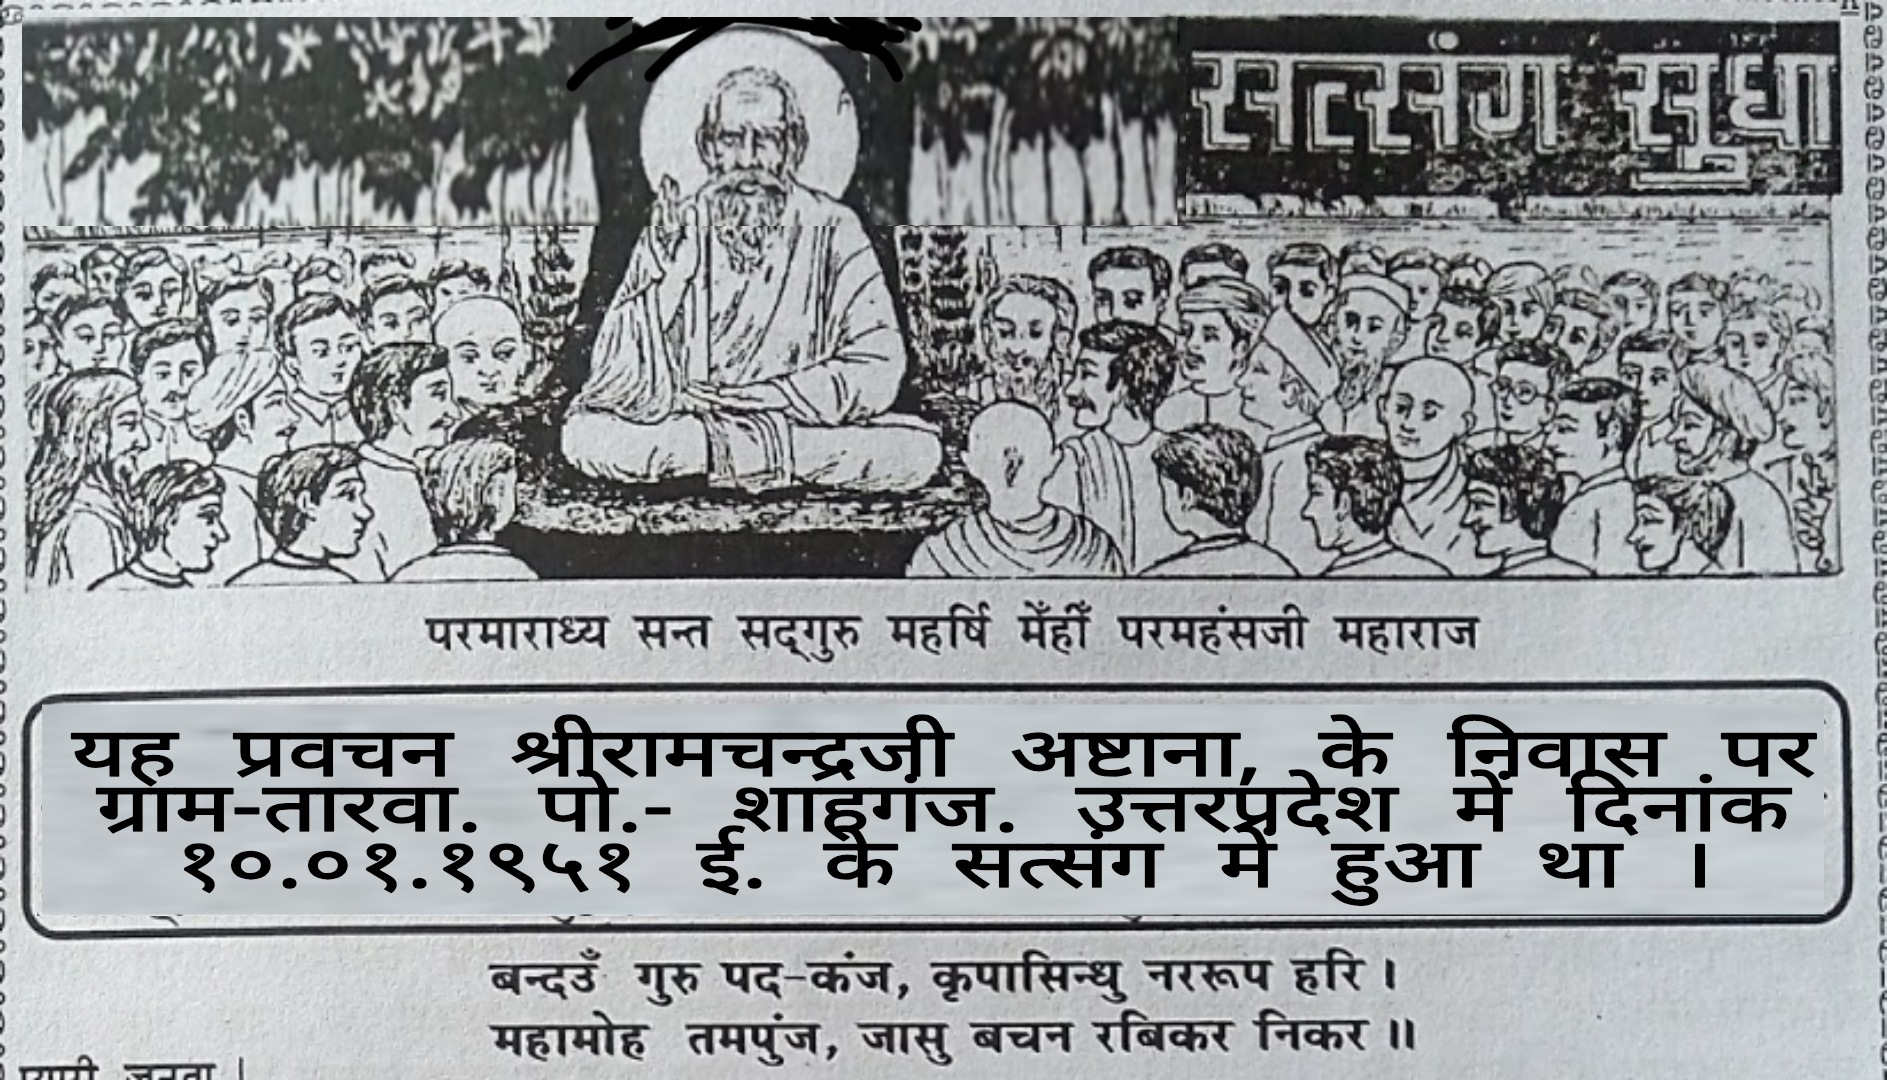 सत्संग सुधा
परमाराध्य सन्त सद्‌गुरु महर्षि मेँहीँ परमहंसजी महाराज
यह प्रवचन श्रीरामचन्द्रजी अष्टाना, के निवास पर
ग्राम-तारवा. पो.- शाहगंज. उत्तरप्रदेश में दिनांक
१०.०१.१९५१ ई. के सत्संग में हुआ था ।
बन्दउँ गुरु पद-कंज, कृपासिन्धु नररूप हरि ।
महामोह तमपुंज, जासु बचन रबिकर निकर ॥